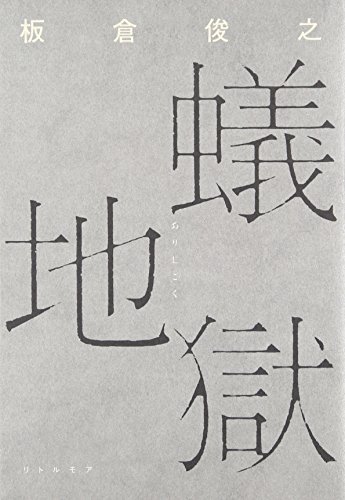 板倉俊之
蟻地獄
ありじごく
リトルモア